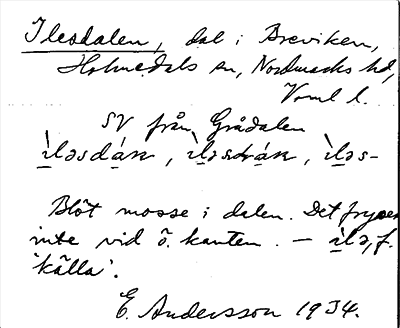 Ilesdalen, dal i Breviken,
Holmedals sn, Nordmarks hd,
Vrml l.
SV från Grådalen
ìləsdáɴ, ìləsdráɴ, ìləs-
Blöt mosse i dalen. Det fryser
inte vid ö. kanten. – ìlə, f.
'källa'.
E. Andersson 1934.